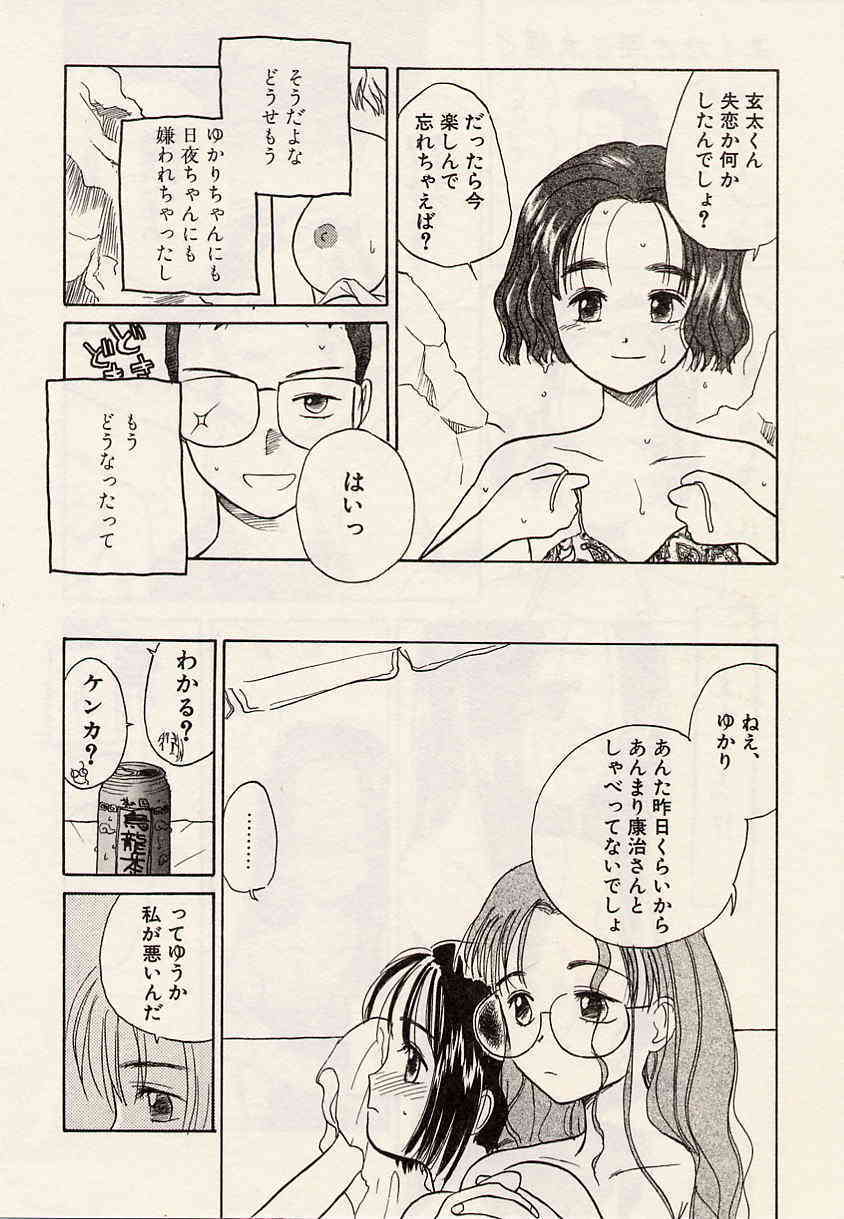 玄太くん
失恋か何か
したんでしょ？
だったら今
楽しんで
忘れちゃえば？
そうだよな
どうせもう
ゆかりちゃんにも
日夜ちゃんにも
嫌われちゃったし
どき
どき
もう
どうなったって
はいっ
ねえ、
ゆかり
あんた昨日くらいから
あんまり康治さんと
しゃべってないでしょ
………
わかる？
ケンカ？
烏龍茶
ってゆうか
私が悪いんだ